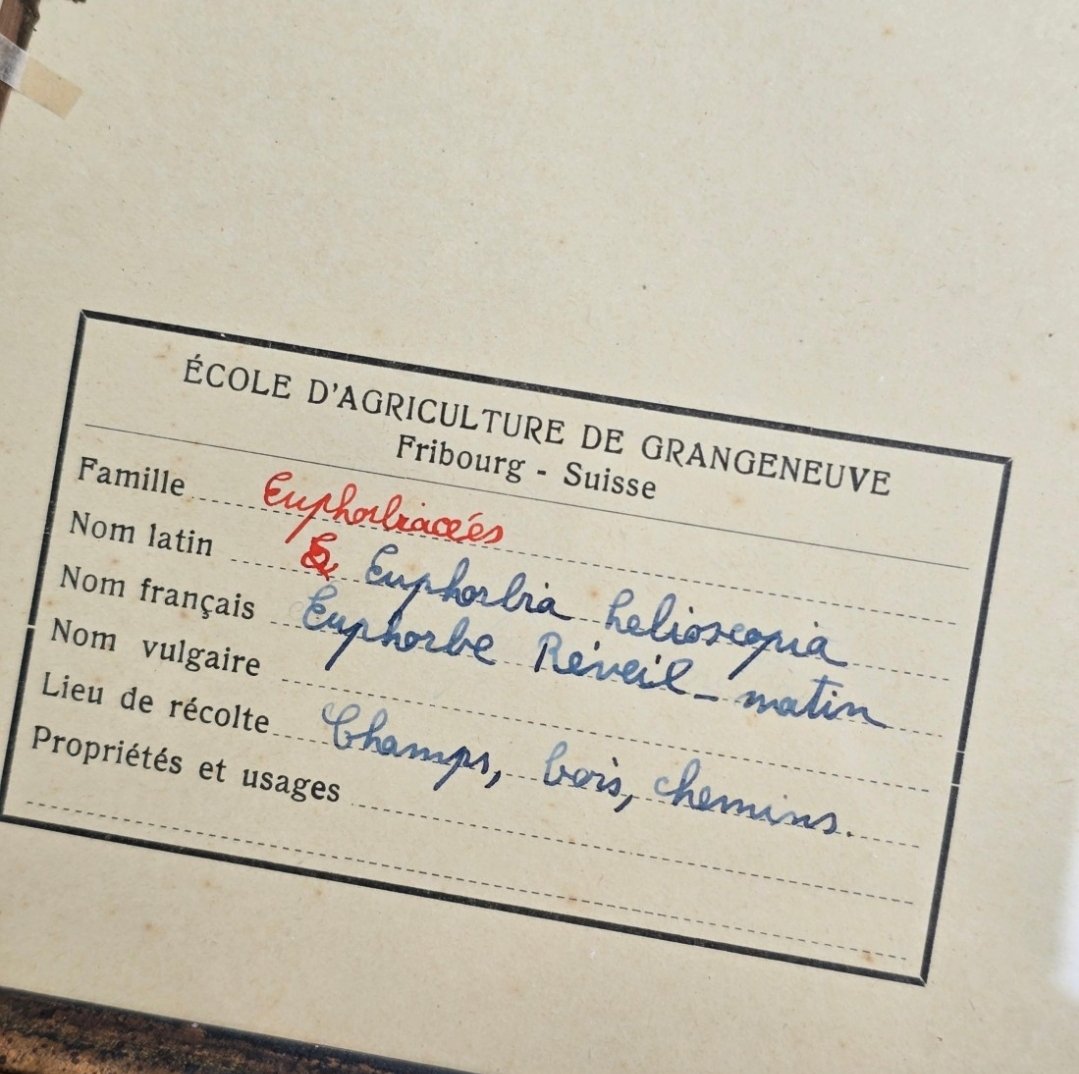 ÉCOLE D'AGRICULTURE DE GRANGENEUVE
Fribourg - Suisse
Famille Euphorbiacées
Nom latin Euphorbia helioscopia
Nom français Euphorbe Réveil-matin
Nom vulgaire
Lieu de récolte Champs, bois, chemins.
Propriétés et usages